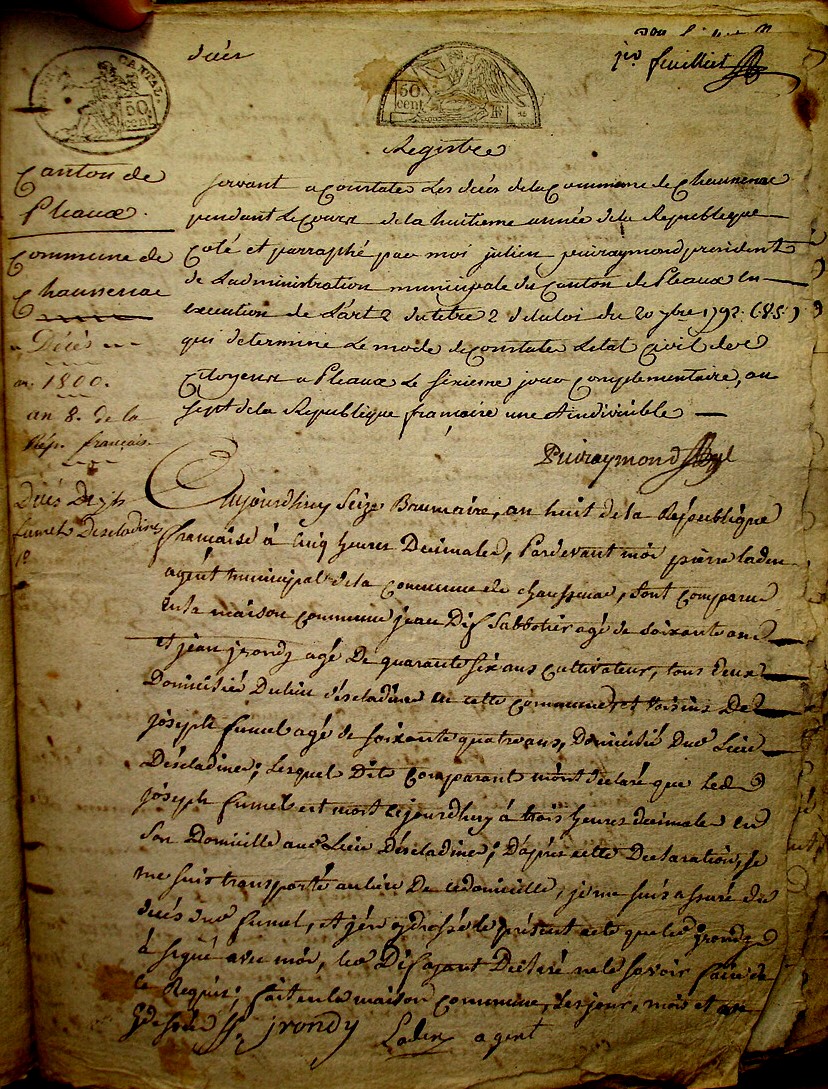 décès
pr. feuillet
CANTAL
50
cent
50
cent
RF
Registre
Canton de
Pleaux.
Commune de
Chaussenac
Décès
an. 1800.
an 8. de la
Rép. français.
servant a Constater Les décès de la Commune de Chaussenac
pendant Le Cours de la huitieme année de la Republique
Coté et parraphé par moi julien puiraymond president
de L'administration municipale du Canton de Pleaux en
execution de L'art 2 du titre 2 de la loi du 20 7bre 1792 (v.s.)
qui determine Le mode de Constater Letat Civil des
Citoyens a Pleaux Le sixieme jour Complementaire, an
sept de la Republique francaise une et indivisible
Puiraymond
Décès De jph
fumel Descladines
1º
Aujourdhuy Seize Brumaire, an huit de la République
francaise à Cinq heures Decimales, Pardevant moi pierre laden
agent municipal de la commune de chaussenac, sont comparu
en la maison commune jean Dif Sabbotier agé de soixante ans
et jean jrondy agé De quarante six ans cultivateur, tous deux
Domicilié Du lieu déscladines en cette commune, et voisins De
joseph fumel agé de soixante quatre ans, Domicilié Du Lieu
Déscladines; Lesquel Dits Comparant m'ont declaré que Led
joseph fumel est mort cejourdhuy à trois heures decimales en
son Domicille au Lieu Déscladines; D'après cette Declaration, je
me suis transporté au lieu De ce domicille, je me suis assuré du
décés du fumel, et j'en ay dréssé le présent acte que le jrondy
à signé avec moi, le Dif ayant Déclaré ne le savoir faire de
ce Requis; fait en la maison commune, les jour, mois et an
jrondy Laden agent